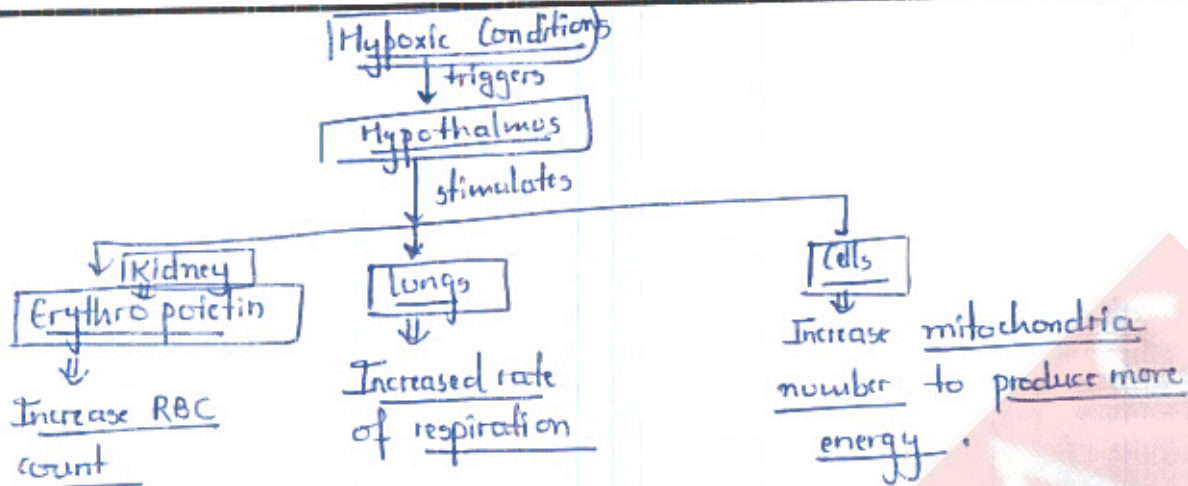 Hypoxic Conditions
triggers
Hypothalmus
stimulates
Kidney
Erythro poietin
Increase RBC
count
Lungs
Increased rate
of respiration
Cells
Increase mitochondria
number to produce more
energy.